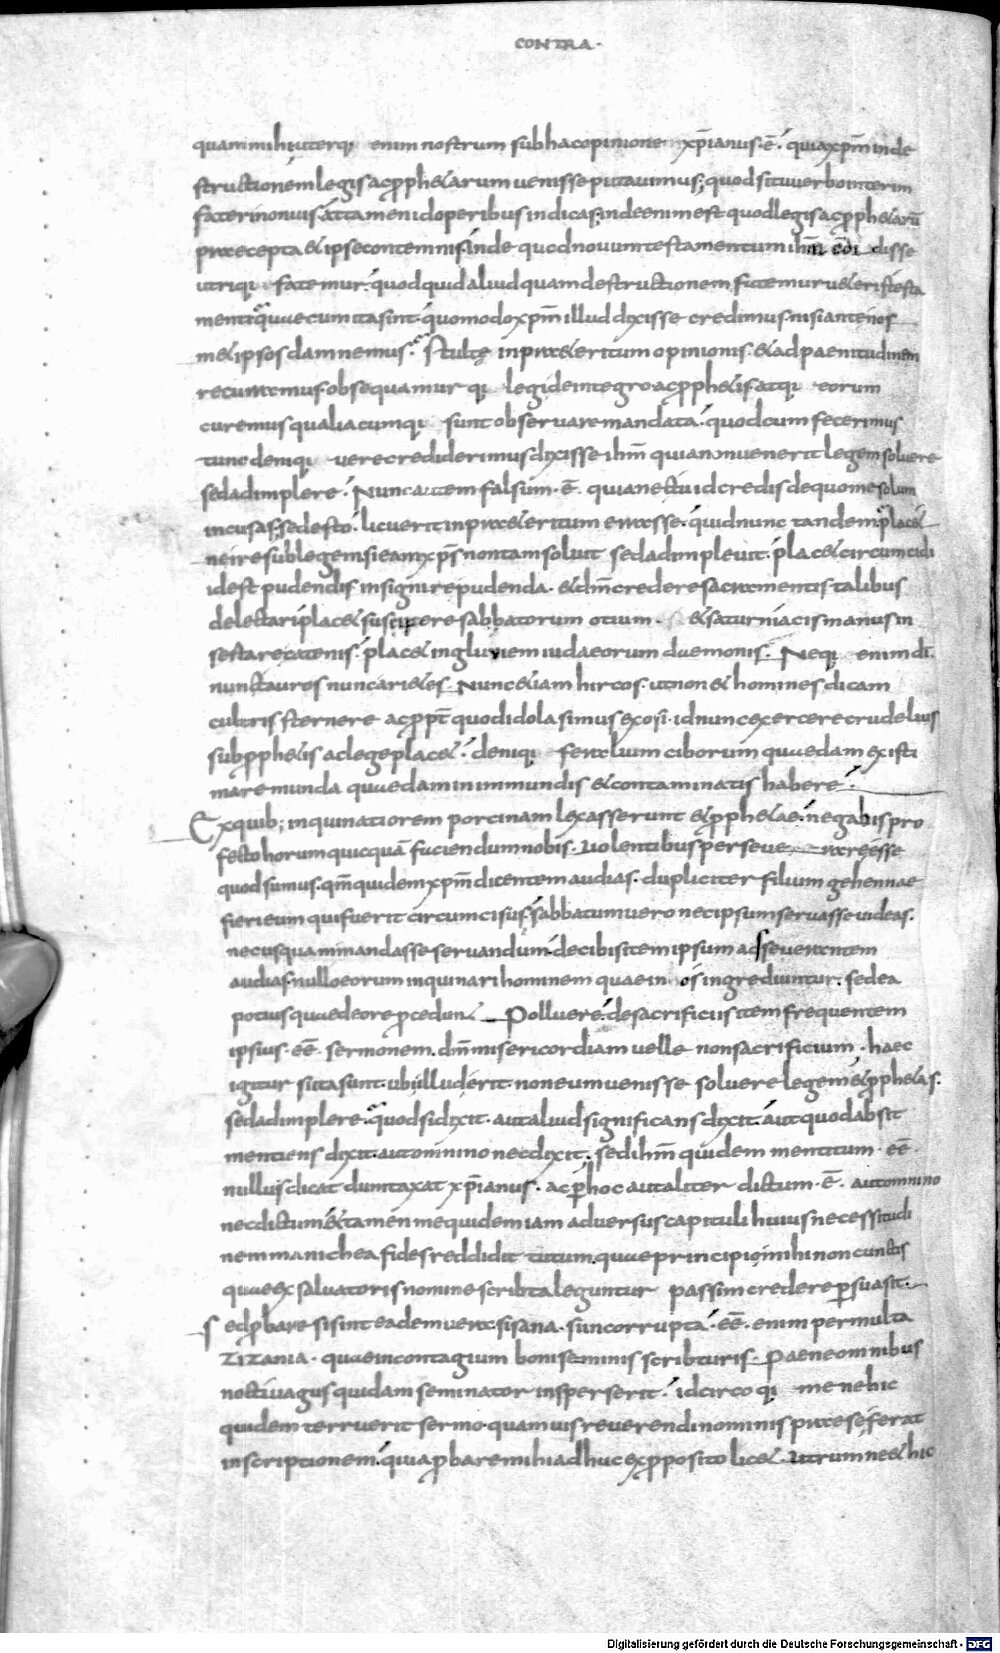 CONTRA·
quam mihi uterq; enim nostrum sub hac opinione xp̄ianus·ē· quia xp̄m in de
structionem legis ac p̱phetarum venisse putavimus; quod si tu verbo interim
fateri non vis· attamen id operibus indicas; inde enim est quod legis ac p̱phetarū
praecepta et ipse contemnis· inde quod novum testamentum ih̄m condidisse
utriq; fatemur· quod quid aliud quam destructionem fitemur veteris testa
menti· quae cum ita sint· quomodo xp̄m illud dixisse credimus· nisi ante nos
met ipsos damnemus· stultę in praeteritum opinionis· et ad paenitudinem
recuramus· obsequamur q; legi de integro ac p̱phetis· atq; eorum
curemus qualiacumq; sunt observare mandata· quod cum fecerimus
tunc deniq; vere crediderimus dixisse ihm̄ quia non venerit legem solvere
sed adimplere· Nunc autem falsum·ē· quia nec tu id credis de quo me solum
incusas; sed esto· licuerit in praeteritum errasse· quid nunc tandem· placet
ne ire sub legem si eam xp̄s non tam solvit sed adimplevit· placet circumcidi
id est pudendis insignire pudenda· et dm̄ credere sacramentis talibus
delectari· placet suscipere sabbatorum otium· et saturniacis manus in
sertare catenis· placet ingluviem iudaeorum daemonis· Neq; enim di·
nunc tauros nunc arietes· Nunc etiam hircos· ut non et homines dicam
cultris sternere ac p̱pt̄ quod idola simus exosi· id nunc exercere crudelius
sub p̱phetis ac lege placet· deniq; feralium ciborum quaedam existi
mare munda quaedam in immundis et contaminatis habere·
Ex quib; inquinatiorem porcinam lex asserunt et p̱phetae· negabis pro
fecto horum quicquā faciendum nobis· volentibus perseverare esse
quod sumus· qm̄ quidem xp̄m dicentem audias· dupliciter filium gehennae
fieri eum qui fuerit circumcisus; sabbatum vero nec ipsum servasse videas·
nec usquam mandasse servandum· de cibis item ipsum adseverantem
audias· nullo eorum inquinari hominem quae in os ingrediuntur· sed ea
potius quae de ore p̱cedunt Polluere· de sacrificiis item frequentem
ipsius·eē· sermonem· dm̄ misericordiam velle non sacrificium· haec
igitur si ita sunt· ubi illud erit· non eum venisse solvere legem et p̱phetas·
sed adimplere· quod si dixit· aut aliud significans dixit· aut quod absit
mentiens dixit· aut omnino nec dixit; sed ihm̄ quidem mentitum·eē·
nullus dicat dumtaxat xp̄ianus· ac p̱ hoc aut aliter dictum·ē· aut omnino
nec dictum· et tamen me quidem iam adversus capituli huius necessitudi
nem manichea fides reddidit tutum· quae principio mihi non cunctis
quae ex salvatoris nomine scribta leguntur passim credere p̱suasit·
sed p̱bare si sint eadem vera si sana· si incorrupta·eē· enim permulta
zizania· quae in contagium boni seminis scribturis· Paene omnibus
noctivagus quidam seminator insperserit· idcircoq; me ne hic
quidem terruerit sermo· quamvis reverendi nominis praese ferat
inscriptionem· quia p̱bare mihi adhuc ex p̱posito licet· Utrumne et hic
Digitalisierung gefördert durch die Deutsche Forschungsgemeinschaft - DFG